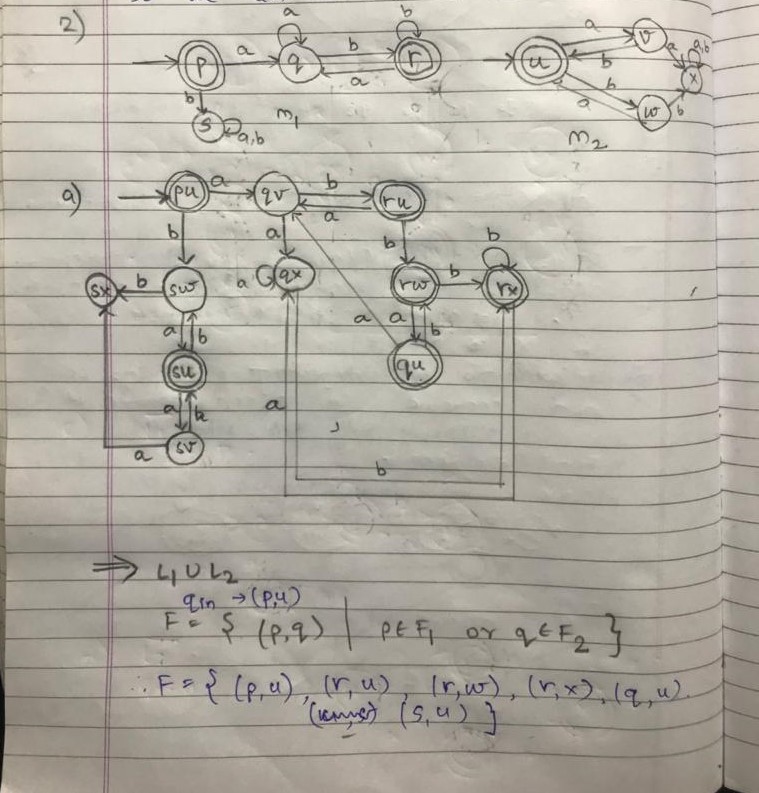 2)
a b b
p a q b r u a v a a,b
a b x
b b
s a,b m1 a w b
m2
a) pu a qv b ru
a
b a b b
sx b sw a qx rw b rx
a b a a b
su qu
a b a
a sv
b
⇒ L1 ∪ L2
qin → (p,u)
F = { (p,q) | p ∈ F1 or q ∈ F2 }
∴ F = { (p,u), (r,u), (r,w), (r,x), (q,u)
(s,u) }